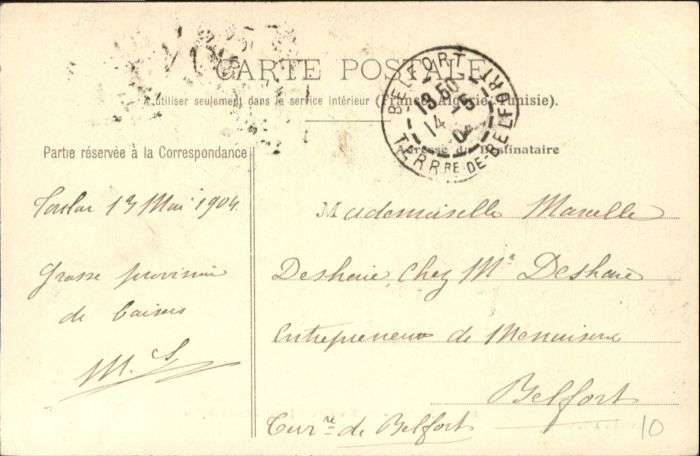 CARTE POSTALE
A utiliser seulement dans le service intérieur (France, Algérie, Tunisie).
BELFORT
18 50
14 -5
04
TERR.RE DE-BELFORT
Partie réservée à la Correspondance
Adresse du Destinataire
Toulon 13 Mai 1904.
Grosse provision
de baisers
M. S
Mademoiselle Marcelle
Deshaie, Chez Mr Deshaie
Entrepreneur de Menuiserie
Belfort
Terre de Belfort
10